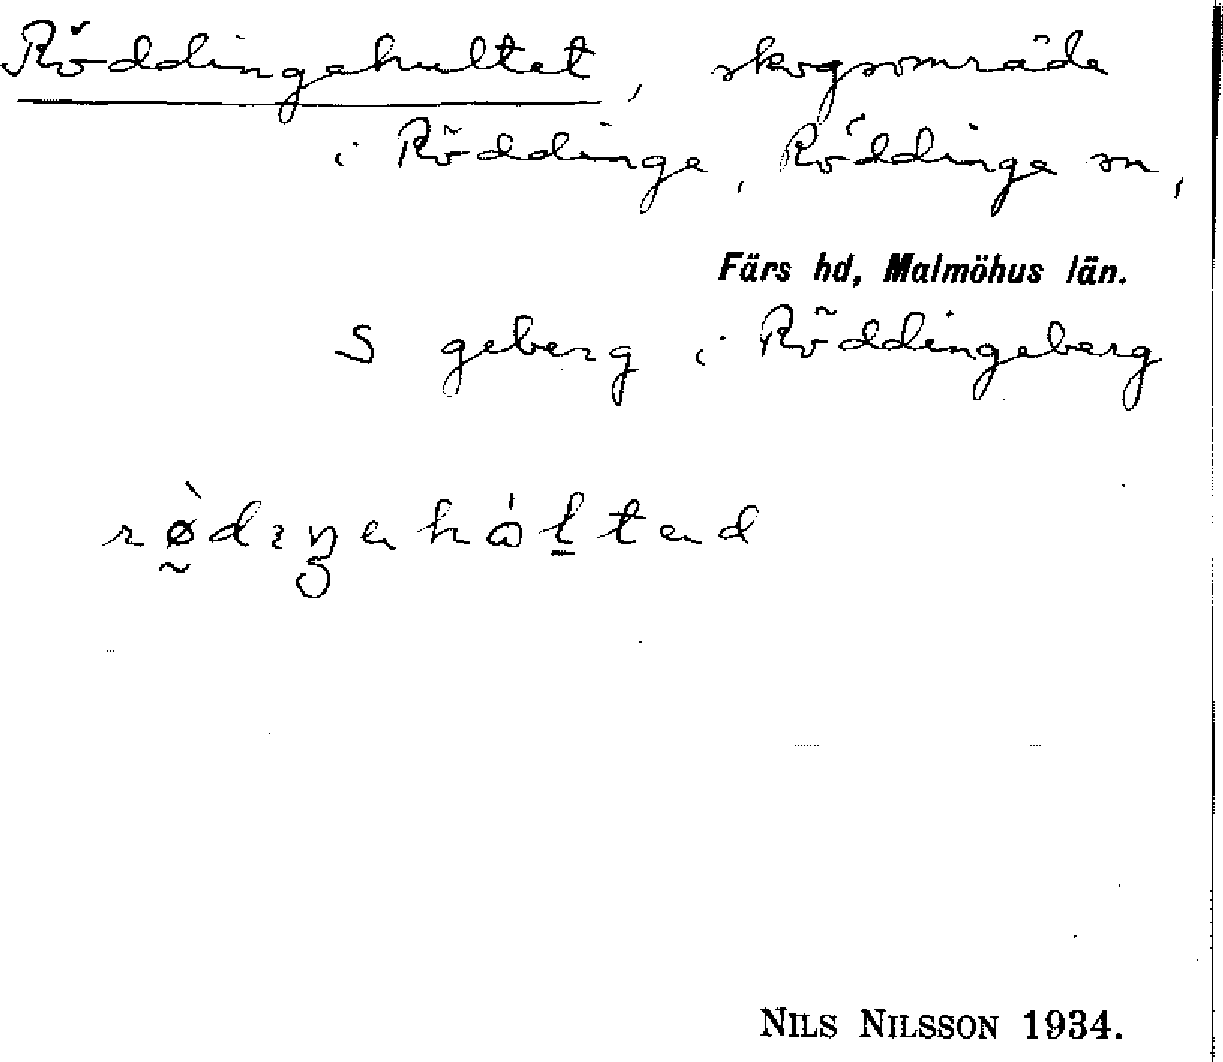 Röddingehultet, skogsområde
i Röddinge, Röddinge sn,
Färs hd, Malmöhus län.
S geberg i Röddingeberg
NILS NILSSON 1934.